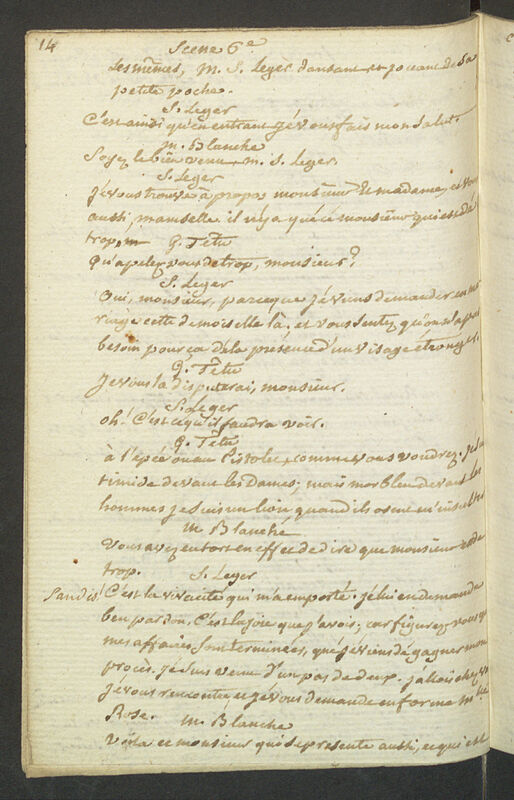 14
Scene 6e
Les mêmes, M. S. Leger dansant et jouant de Sa
petite poche.
S. Leger
C'est ainsi qu'en entrant jé vous fais mon Salut.
M. Blanche
Soyez le bien venu, M. S. Leger.
S. Leger
jé vous trouve à propos monsieur Et madame, et vous
aussi, mamselle. il n'y a que ce monsieur qui est dé
trop,
G. Têtu
Qu'apelez vous de trop, monsieur?
S. Leger
Oui, monsieur, parceque jé viens demander en ma
riage cette demoiselle là; et vous sentez qu'on n'a pas
besoin pour ça de la présence d'un visage étranger.
G. Têtu
Je vous la disputerai, monsieur.
S. Leger
oh! C'est cé qu'il faudra voir.
G. Têtu
à l'épée ou au Pistolet, comme vous voudrez. je suis
timide devant les Dames; mais morbleu devant les
hommes je suis un lion, quand ils osent m'insulter
M. Blanche
Vous avez eu tort en effet de dire que monsieur est de
trop.
S. Leger
Sandis! C'est la vivacité qui m'a emporté. jé lui en demande
ben pardon. C'est la joie que j'avois; car figurez vous q
mes affaires Sont terminées, qué jé viens dé gagner mon
procès. jé suis venu d'un pas de deux. j'allois chez v
jé vous rencontre et jé vous demande en forme Mlle
Rose.
M. Blanche
Voila ce monsieur qui se présente aussi, et qui est